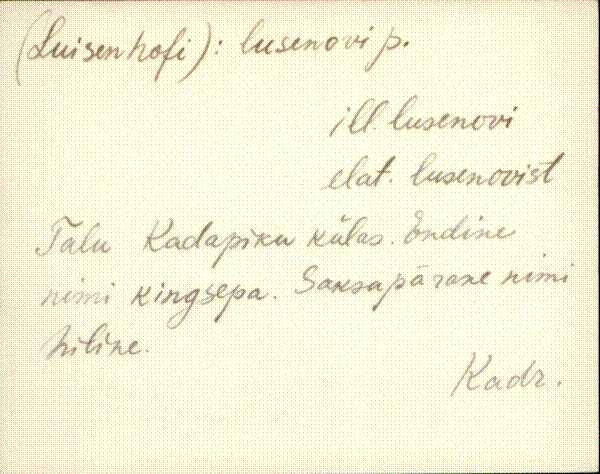 (Luisenhofi): lusenovi p.
ill. lusenovi
elat. lusenovist
Talu Kadapiku külas. Endine
nimi kingsepa. Saksapärane nimi
hiline.
Kadr.